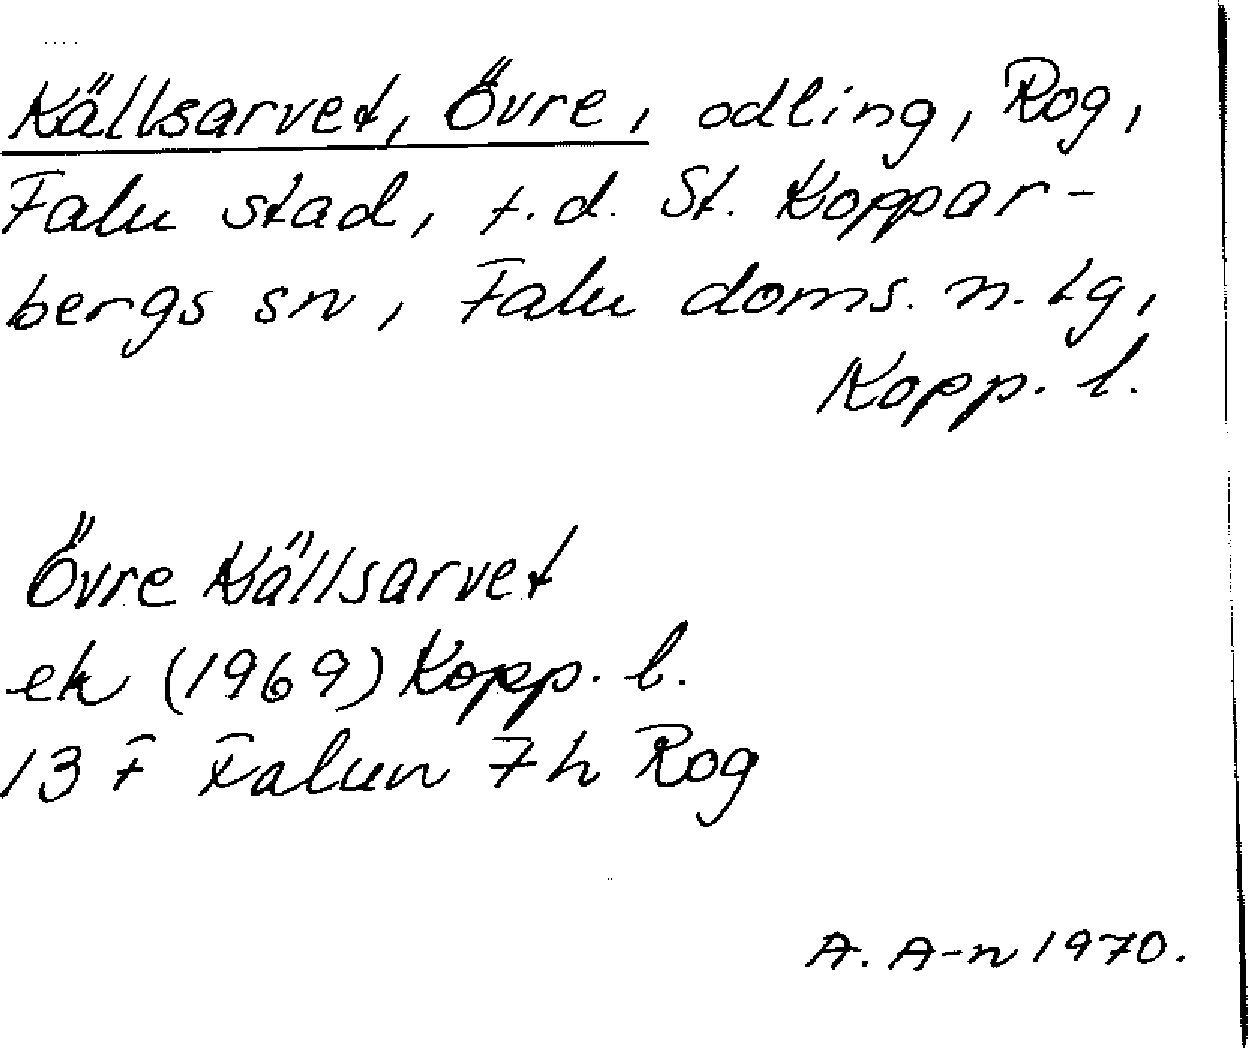 Källsarvet, Övre, odling, Rog,
Falu stad, f.d. St. Koppar-
bergs sn, Falu doms. n. tg,
Kopp. l.
Övre Källsarvet
ek (1969) Kopp. l.
13 F Falun 7h Rog
A. A-n 1970.